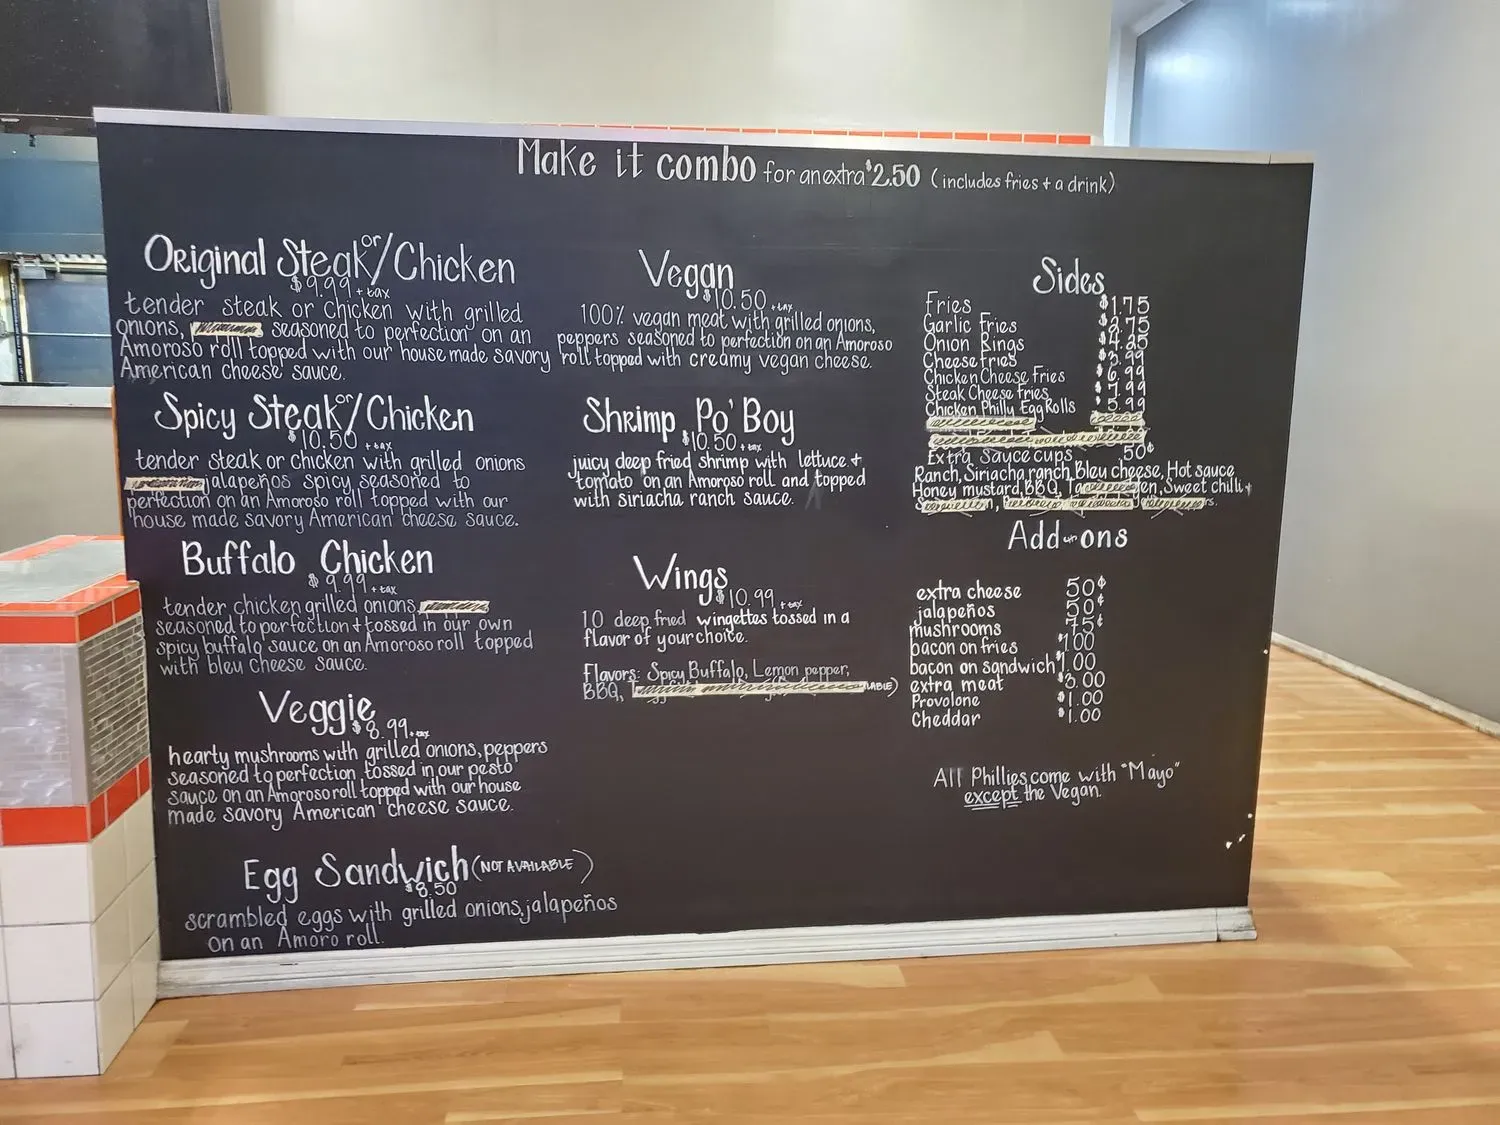 Make it combo for an extra $2.50 (includes fries + a drink)
Original Steak or/Chicken
$9.99 + tax
tender steak or chicken with grilled
onions, seasoned to perfection on an
Amoroso roll topped with our house made savory
American cheese sauce.
Spicy Steak or/Chicken
$10.50 + tax
tender steak or chicken with grilled onions
jalapeños spicy seasoned to
perfection on an Amoroso roll topped with our
house made savory American cheese sauce.
Buffalo Chicken
$9.99 + tax
tender chicken grilled onions,
seasoned to perfection + tossed in our own
spicy buffalo sauce on an Amoroso roll topped
with bleu cheese sauce.
Veggie
$8.99 + tax
hearty mushrooms with grilled onions, peppers
seasoned to perfection tossed in our pesto
sauce on an Amoroso roll topped with our house
made savory American cheese sauce.
Egg Sandwich (NOT AVAILABLE)
$8.50
scrambled eggs with grilled onions, jalapeños
on an Amoro roll.
Vegan
$10.50 + tax
100% vegan meat with grilled onions,
peppers seasoned to perfection on an Amoroso
roll topped with creamy vegan cheese.
Shrimp Po' Boy
$10.50 + tax
juicy deep fried shrimp with lettuce +
tomato on an Amoroso roll and topped
with siriacha ranch sauce.
Wings
$10.99 + tax
10 deep fried wingettes tossed in a
flavor of your choice.
Flavors: Spicy Buffalo, Lemon pepper,
BBQ,
Sides
Fries $1.75
Garlic Fries $2.75
Onion Rings $4.25
Cheese fries $3.99
Chicken Cheese Fries $6.99
Steak Cheese fries $7.99
Chicken Philly Egg Rolls $5.99
Extra Sauce cups .50¢
Ranch, Siriacha ranch, Bleu cheese, Hot sauce
Honey mustard, BBQ, Sweet chilli +
Add-ons
extra cheese 50¢
jalapeños 50¢
mushrooms 75¢
bacon on fries $1.00
bacon on sandwich $1.00
extra meat $3.00
Provolone $1.00
Cheddar $1.00
All Phillies come with "Mayo"
except the Vegan.